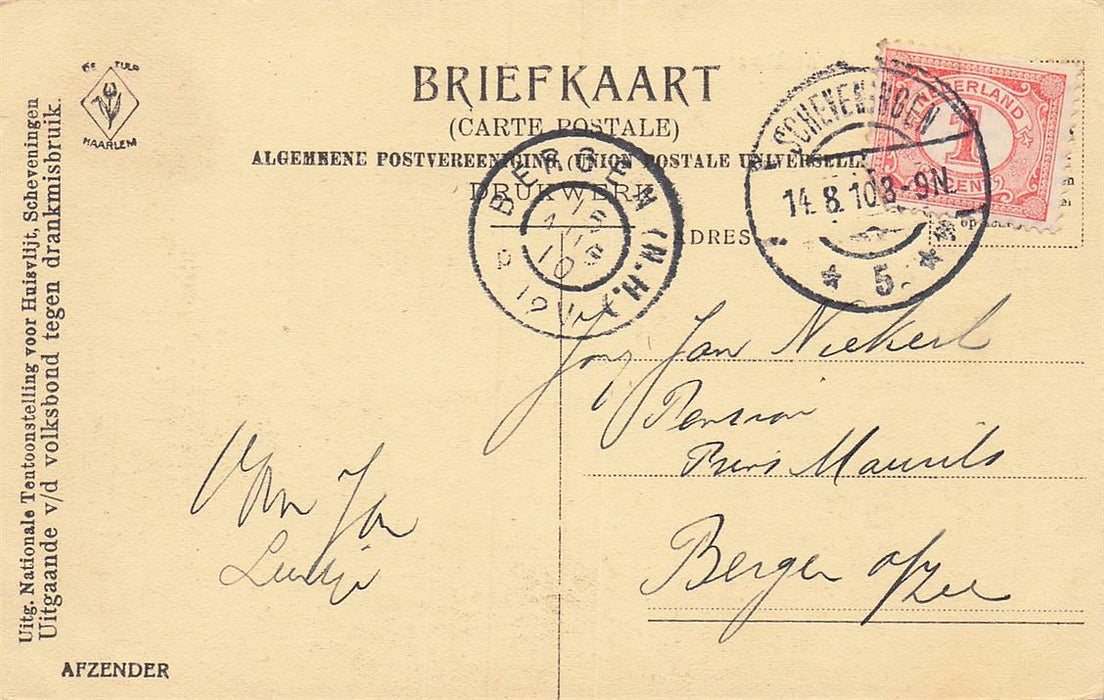 DE TULP
HAARLEM
Uitg. Nationale Tentoonstelling voor Huisvlijt, Scheveningen
Uitgaande v/d volksbond tegen drankmisbruik.
BRIEFKAART
(CARTE POSTALE)
ALGEMEENE POSTVEREENIGING (UNION POSTALE UNIVERSELLE
DRUKWERK
ADRES
NEDERLAND
1
CENT
SCHEVENINGEN
14.8.10 8-9N
5
BERGEN (N.H.)
10
Jan Niekerk
Pension
Prins Maurits
Bergen op/zee
Van Jan
AFZENDER